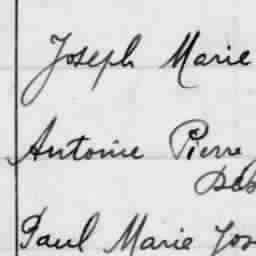 Joseph Marie
Antoine Pierre
Paul Marie